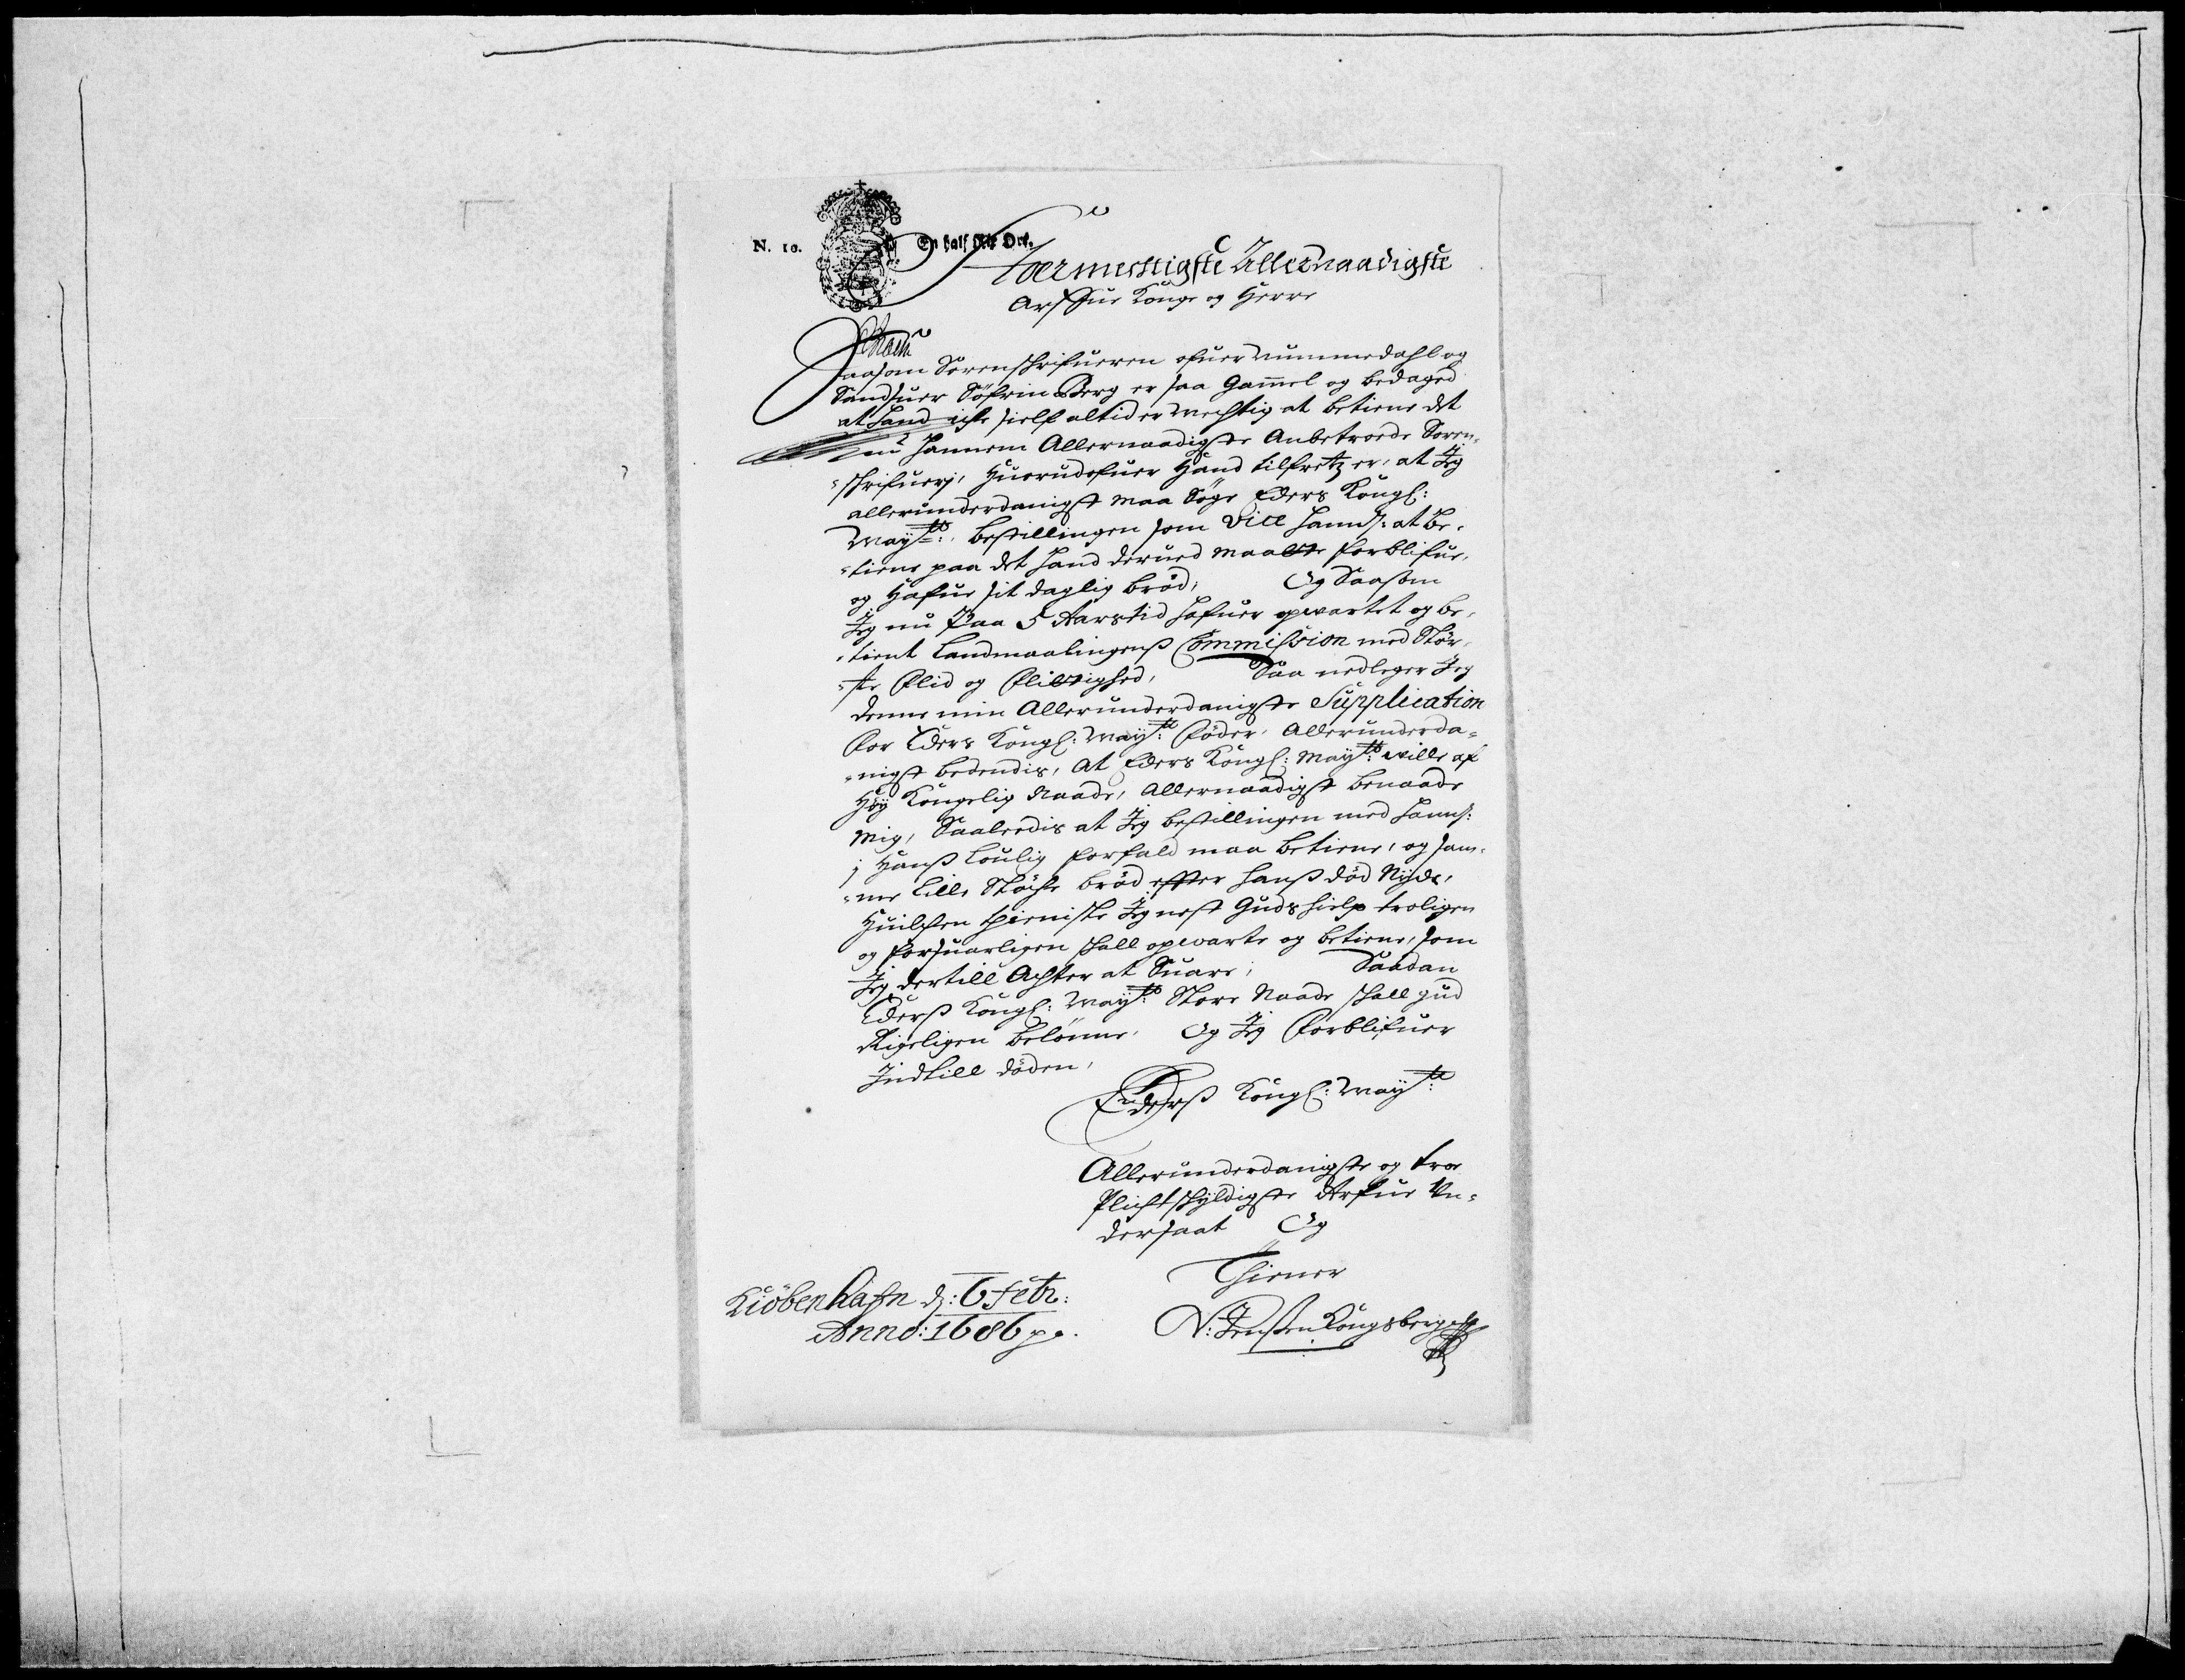 N. 10.
En half Rix Ort.
Stoermectigste Allernaadigste
Arffue Konge og Herre
Saasom Sorenschrifueren ofuer Nummedahl og
Sandsuer Söfrin Berg er saa Gammel og bedaged
at hand iche sielf altid er mechtig at betiene det
nu hannem Allernaadigste Anbetroede Soren-
-schrifuerj, Huorudofuer Hand tilfretz er, at Jeg
allerunderdanigst maa Söge Eders Kongl:
Mayts: Bestillingen som vill hannd: at Be-
-tiene paa det hand derued maatte forblifue,
og Hafue sit daglig brød, Og Saasom
Jeg nu Paa 5 Aarstid hafuer opvartet og be-
-tient Landmaalingens Commission med Stör-
-ste Flid og Flittighed, Saa nedleger Jeg
denne min Allerunderdanigste Supplication
for Eders Kongl: Mayts: föder, Allerunderda-
-nigst bedendis, At Eders Kongl: Mayts: ville af
Höy Kongelig Naade, Allernaadigst benaade
Mig, Saaledis at Jeg bestillingen med hannd:
j Hanss Loulig forfald maa betiene, og sam-
-me lille Stöche bröd effter hanss död Nyde,
Huilchen thienniste Jeg nest Guds hielp troligen
og forsuarligen schall opvarte og betiene, som
Jeg dertill Achter at Suare, Saadan
Ederss Kongl: Mayts: Store Naade schall gud
Rigeligen belönne, Og Jeg forblifuer
Jndtill döden,
Ederss Kongl: Mayts:
Allerunderdanigste og troe
Plichtschyldigste Arfue Vn-
dersaat Og
Thiener
Kiöbenhafn d: 6 Febr:
Anno: 1686 p.
N: Jenssen Kongsberg